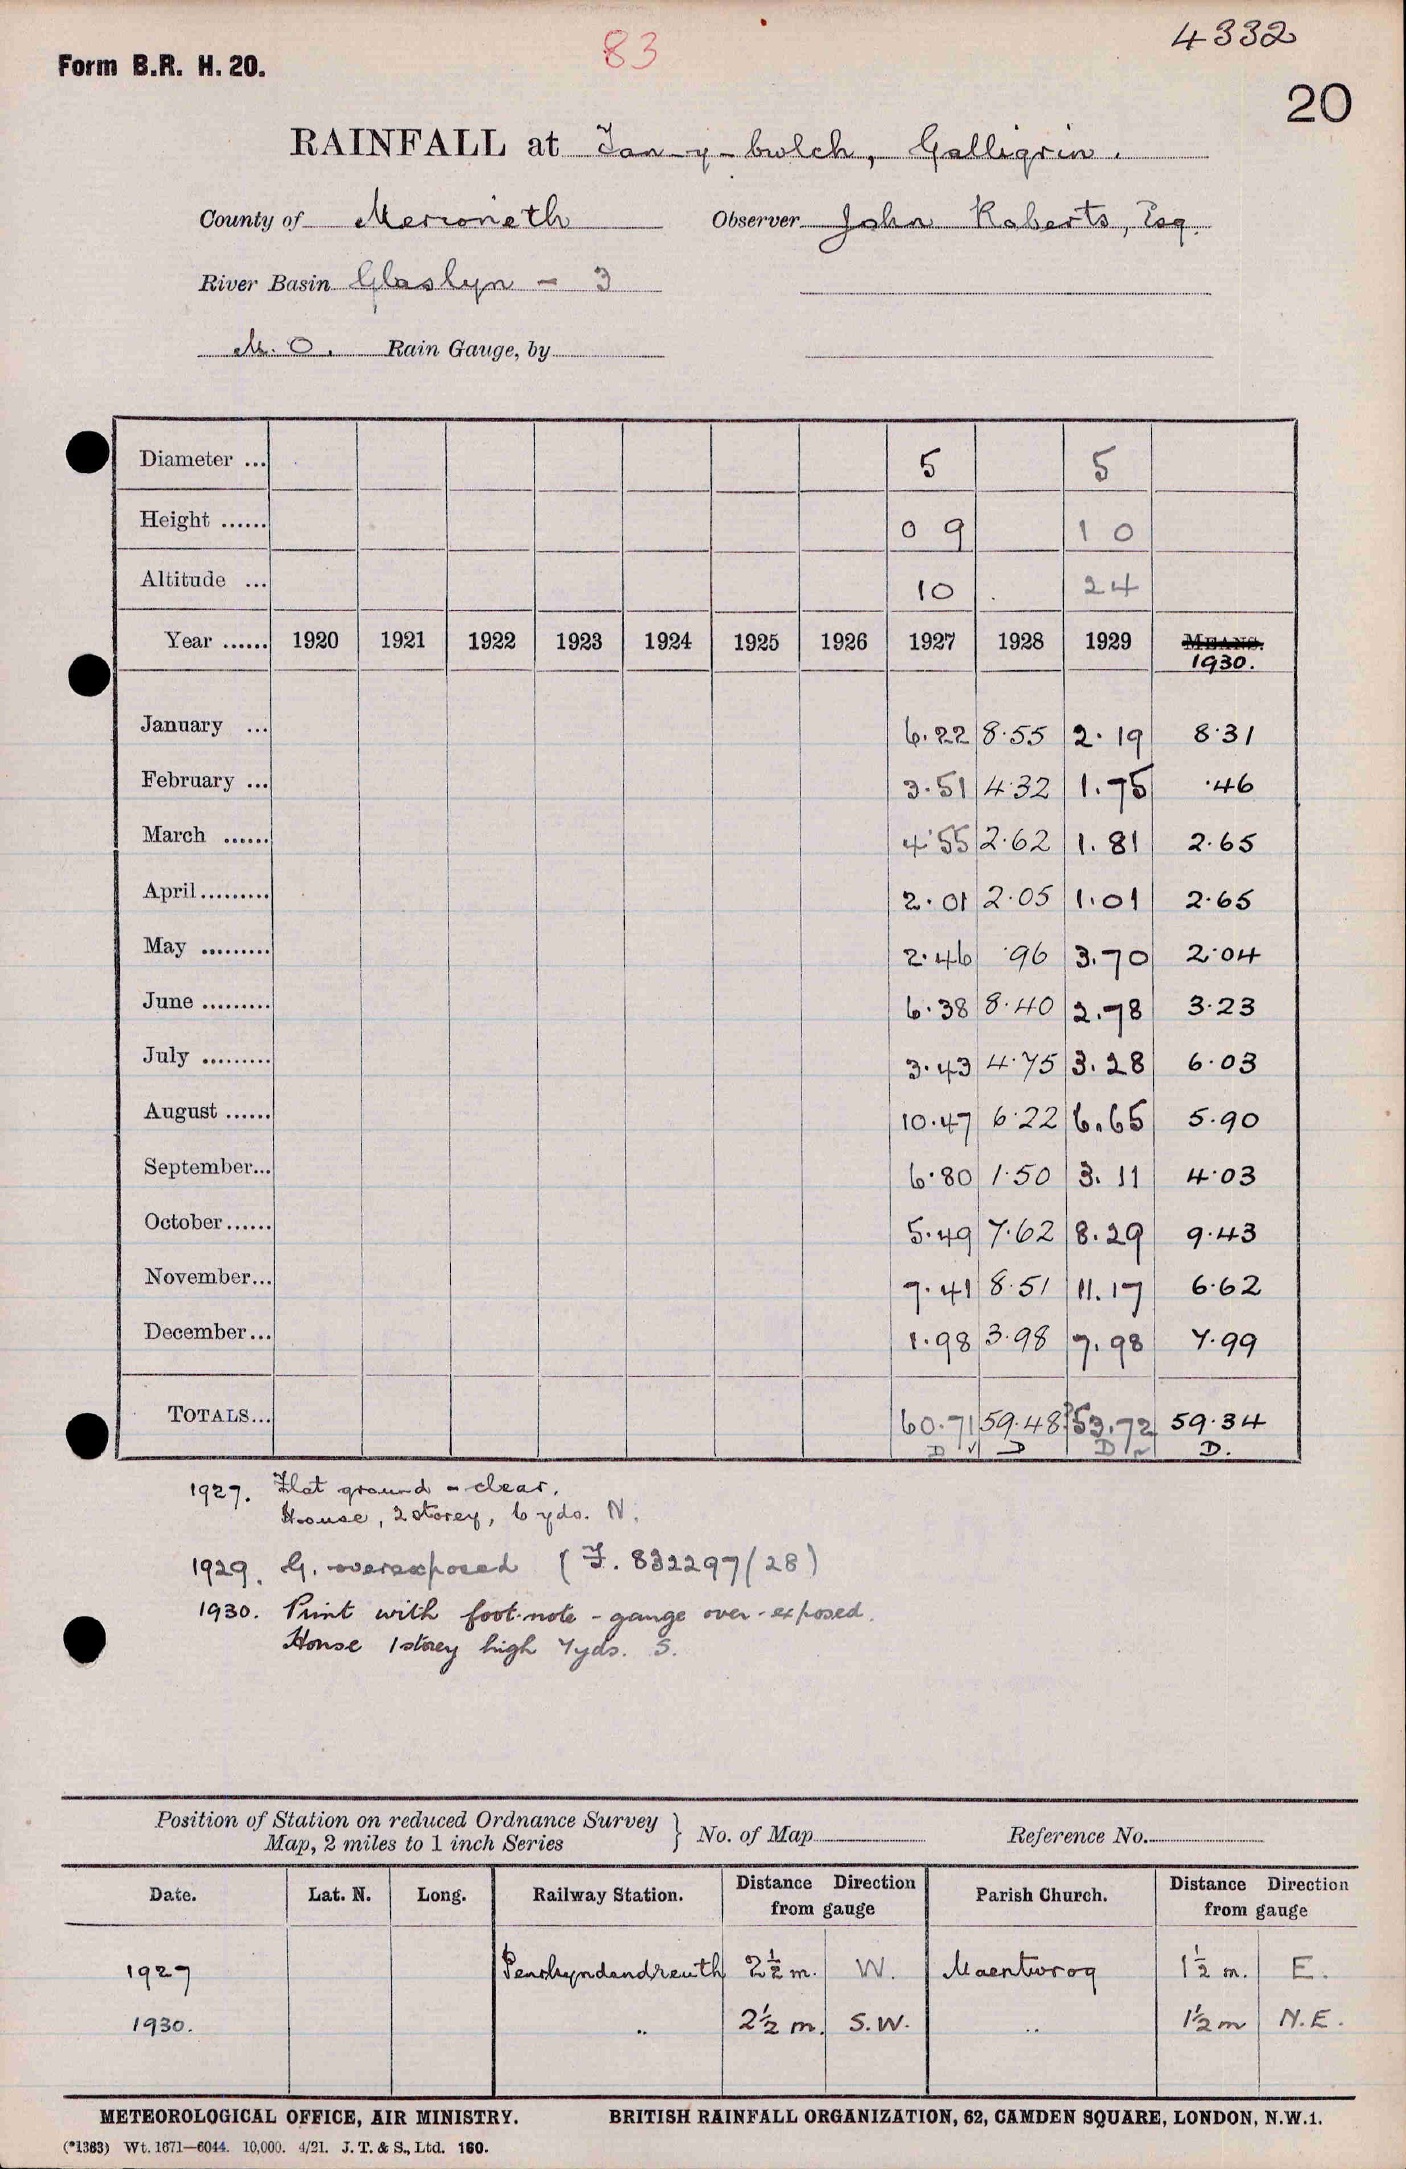 83
4332
Form B.R. H. 20.
20
RAINFALL at Tan-y-bwlch, Gelligrin.
County of Merioneth Observer John Roberts, Esq.
River Basin Glaslyn - 3
M. O. Rain Gauge, by
Diameter ... 5 5
Height ...... 0 9 1 0
Altitude ... 10 24
Year ...... 1920 1921 1922 1923 1924 1925 1926 1927 1928 1929 MEANS.
1930.
January ... 6.22 8.55 2.19 8.31
February ... 3.51 4.32 1.75 .46
March ...... 4.55 2.62 1.81 2.65
April ......... 2.01 2.05 1.01 2.65
May ......... 2.46 .96 3.70 2.04
June ......... 6.38 8.40 2.78 3.23
July ......... 3.43 4.75 3.28 6.03
August ...... 10.47 6.22 6.65 5.90
September... 6.80 1.50 3.11 4.03
October...... 5.49 7.62 8.29 9.43
November... 7.41 8.51 11.17 6.62
December... 1.98 3.98 7.98 7.99
TOTALS... 60.71 59.48 ?53.72 59.34
D ✓ D D ~ D.
1927. Flat ground - clear.
House, 2 storey, 6 yds. N.
1929. G. overexposed (F. 832297/28)
1930. Print with foot-note - gauge over-exposed.
House 1 storey high 7 yds. S.
Position of Station on reduced Ordnance Survey
Map, 2 miles to 1 inch Series } No. of Map Reference No.
Date. Lat. N. Long. Railway Station. Distance Direction from gauge Parish Church. Distance Direction from gauge
1927 Penrhyndendreuth 2½ m. W. Maentwrog 1½ m. E.
1930. " 2½ m. S.W. " 1½ m N.E.
METEOROLOGICAL OFFICE, AIR MINISTRY. BRITISH RAINFALL ORGANIZATION, 62, CAMDEN SQUARE, LONDON, N.W.1.
(*1383) Wt. 1671—6044. 10,000. 4/21. J. T. & S., Ltd. 160.